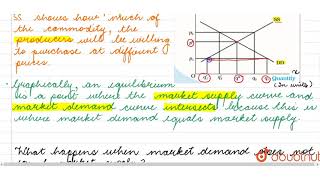 SS shows how much of
the commodity, the
producers will be willing
to purchase at different
prices.
SS
DD
Quantity
(in units)
• Graphically, an equilibrium
is a point where the market supply curve and
market demand curve intersects because this is
where market demand equals market supply.
"What happens when market demand does not
doubtnut